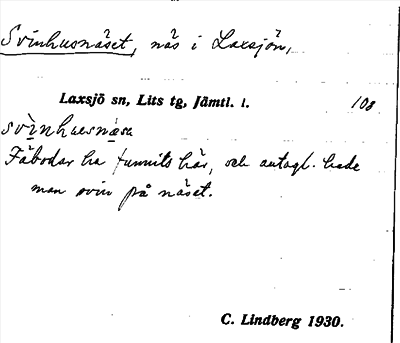 Svinhusnäset, näs i Laxsjön,
Laxsjö sn, Lits tg, Jämtl. l. 108
svìnhusnä̀sa
Fäbodar ha funnits här, och antagl. hade
man svin på näset.
C. Lindberg 1930.